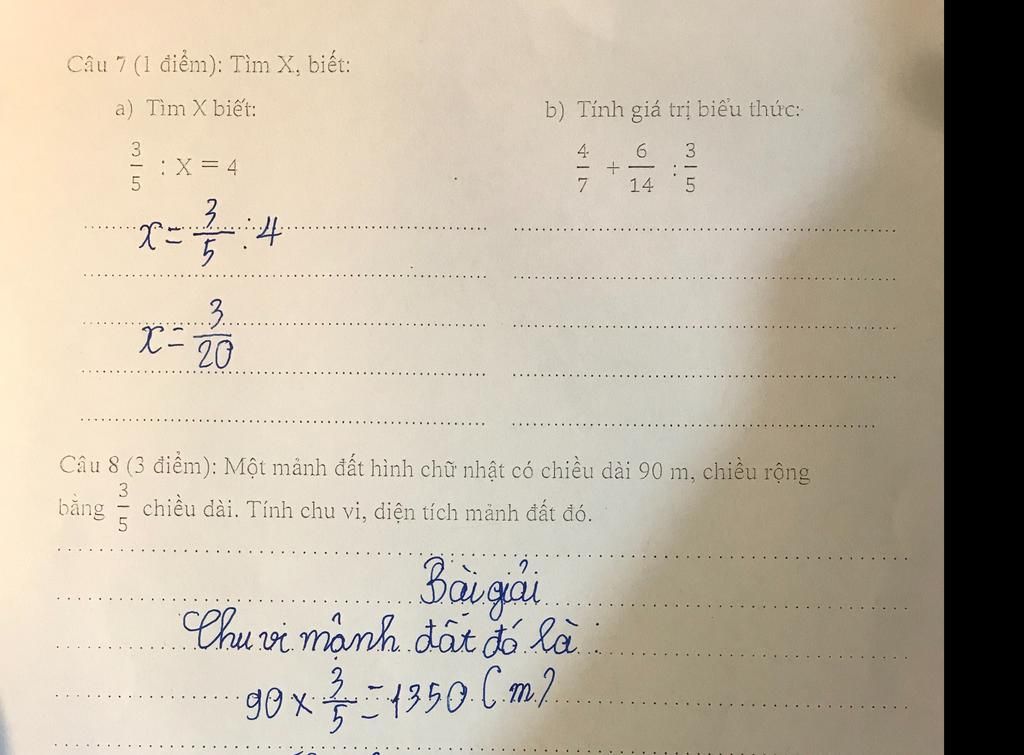 Câu 7 (1 điểm): Tìm X, biết:
a) Tìm X biết:
3/5 : X = 4
x = 3/5 : 4
x = 3/20
b) Tính giá trị biểu thức:
4/7 + 6/14 : 3/5
Câu 8 (3 điểm): Một mảnh đất hình chữ nhật có chiều dài 90 m, chiều rộng
bằng 3/5 chiều dài. Tính chu vi, diện tích mảnh đất đó.
Bài giải
Chu vi mảnh đất đó là:
90 x 3/5 = 1350 (m)